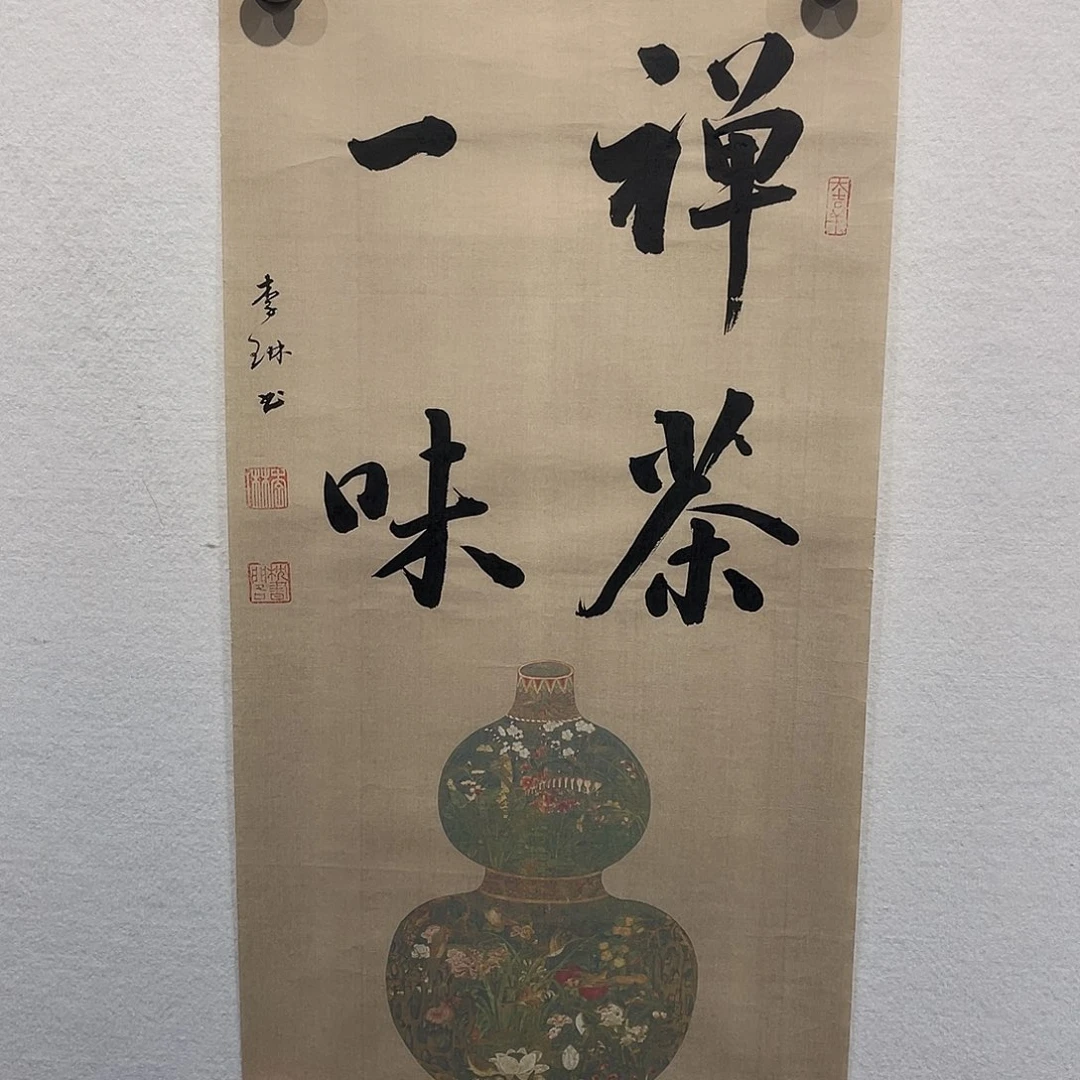 禅茶
一味
李琳书